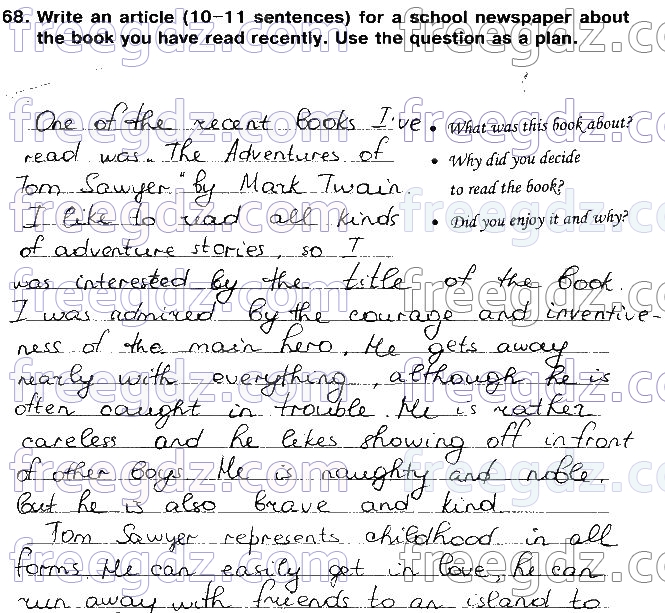 68. Write an article (10–11 sentences) for a school newspaper about
the book you have read recently. Use the question as a plan.
One of the recent books I've
read was "The Adventures of
Tom Sawyer" by Mark Twain.
I like to read all kinds
of adventure stories, so I
• What was this book about?
• Why did you decide
to read the book?
• Did you enjoy it and why?
was interested by the title of the book.
I was admired by the courage and inventive-
ness of the main hero. He gets away
nearly with everything, although he is
often caught in trouble. He is rather
careless and he likes showing off in front
of other boys. He is naughty and noble,
but he is also brave and kind.
Tom Sawyer represents childhood in all
forms. He can easily get in love, he can
run away with friends to an island to
freegdz.com